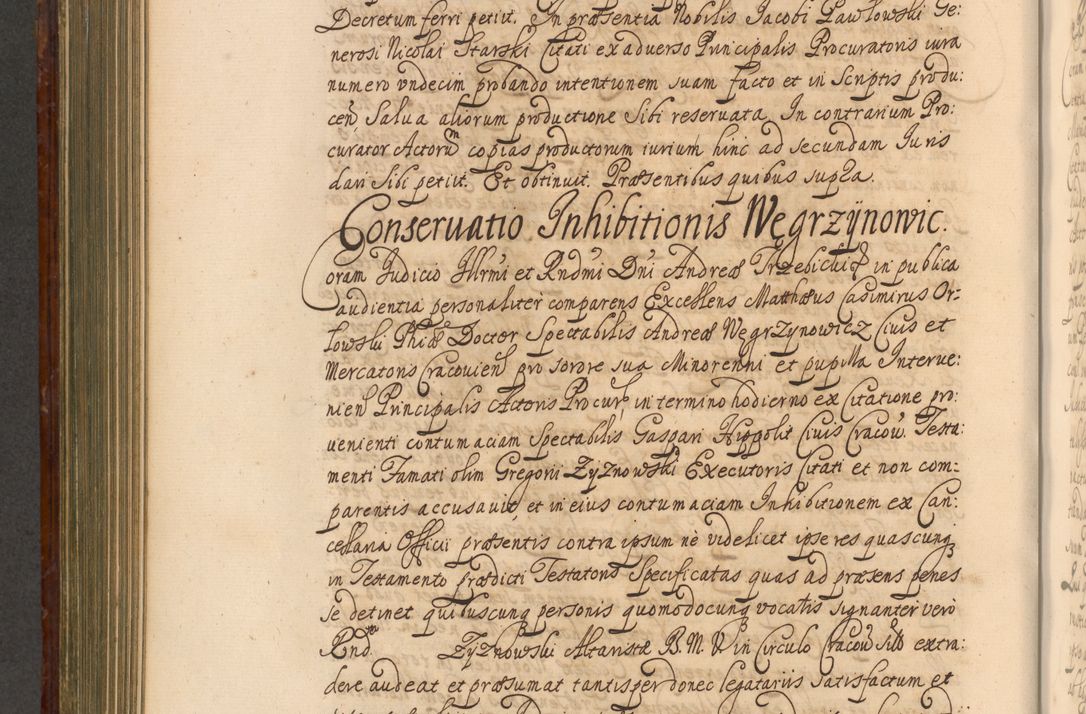 Decretum ferri petiit. In præsentia Nobilis Jacobi Pawłowski Ge:
nerosi Nicolai Starski Citati ex adverso Principalis Procuratoris iura
numero vndecim probando intentionem suam facto et in Scriptis produ:
cen̄ Salva aliorum productione Sibi reservata. In contrarium Pro:
curator Actorū copias productorum iurium hinc ad secundam Iuris
dari Sibi petiit. Et obtinuit. Præsentibus quibus supra.
Conseruatio Inhibitionis Węgrzÿnowic.
Coram Judicio Illrmi et Rndmi Dni Andreæ Trzebicki in publica
audientia personaliter comparens Excellens Matthæus Casimirus Or-
łowski Phiæ Doctor Spectabilis Andreæ Węgrzynowicz Ciuis et
Mercatoris Cracouien̄ pro sorore sua Minorenni et pupilla Interue:
nien̄ Principalis Actoris Procur̄ in termino hodierno ex Citatione pro:
uenienti contumaciam Spectabilis Gaspari Hippolit Ciuis Cracou̇ Testa:
menti Famati olim Gregorii Zyznowski Executoris Citati et non com:
parentis accusauit, et in eius contumaciam Inhibitionem ex Can:
cellaria Officii præsentis contra ipsum nè videlicet ipse res quascunq
in Testamento prædicti Testatoris Specificatas quas ad præsens penes
se detinet quibuscunq personis quomodocunq vocatis signanter verò
Rndm Zyznowski Altaristæ B.M.V. in Circulo Cracou̇ Sibi extra:
dere audeat et præsumat tantisper donec legatariis satisfactum et